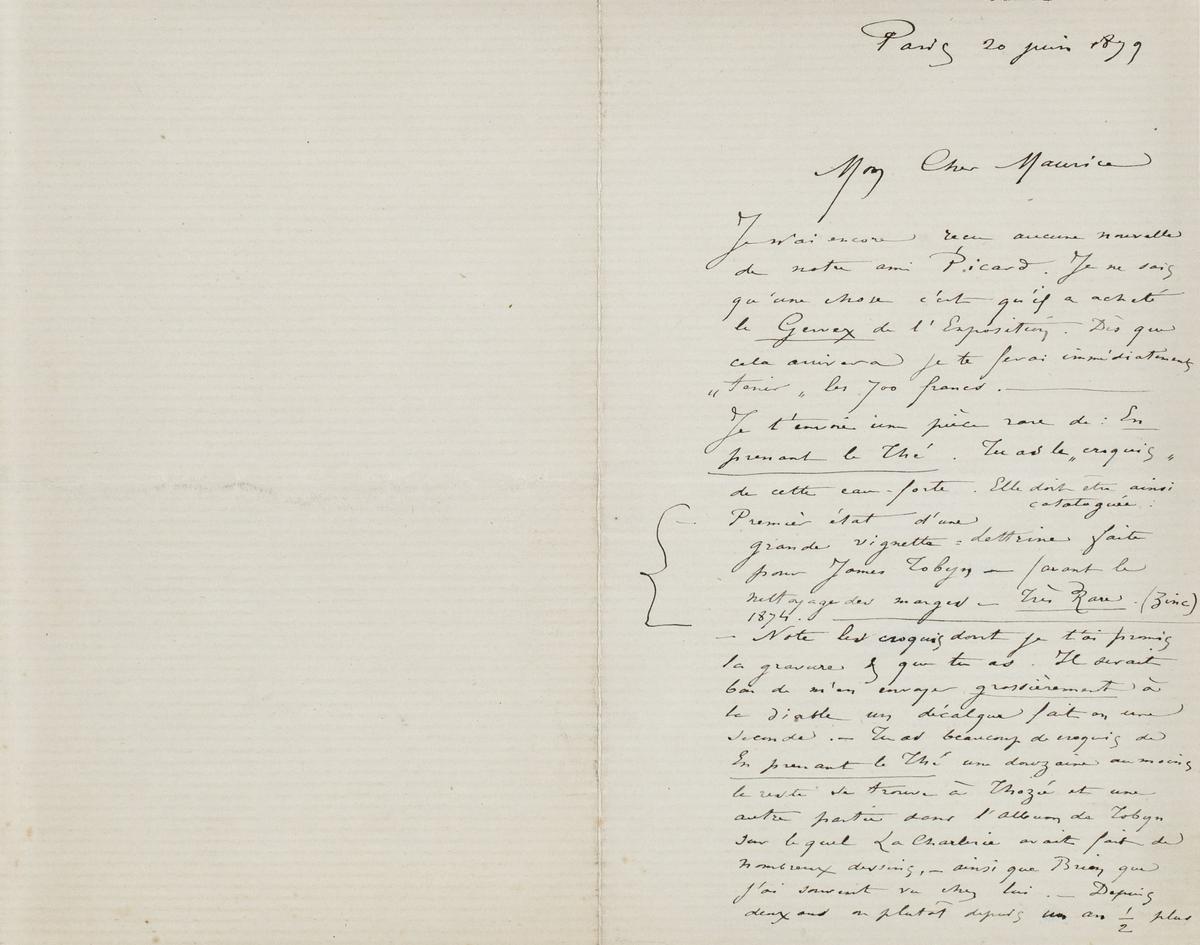 Paris 20 juin 1879
Mon Cher Maurice
Je n'ai encore reçu aucune nouvelle
de notre ami Picard. Je ne sais
qu'une chose c'est qu'il a acheté
le Gervex de l'Exposition. Dès que
cela arrivera je te ferai immédiatement
„ tenir „ les 700 francs.
Je t'envoie une pièce rare de : En
prenant le Thé. Tu as le „ croquis „
de cette eau-forte. Elle doit etre ainsi
cataloguée :
– Premier état d'une
grande vignette = lettrine faite
pour James Tobyn — (avant le
nettoyage des marges — Très Rare. (Zinc)
1874.
— Note les croquis dont je t'ai promis
la gravure & que tu as. Il serait
bon de m'en envoyer grossièrement à
la diable un décalque fait en une
seconde. — Tu as beaucoup de croquis de
En prenant le Thé une douzaine au moins
le reste se trouve à Thozée et une
autre partie dans l'album de Tobyn
sur lequel La Charlerie avait fait de
nombreux dessins, — ainsi que Brion que
j'ai souvent vu chez lui. — Depuis
deux ans ou plutôt depuis un an 1/2 plus